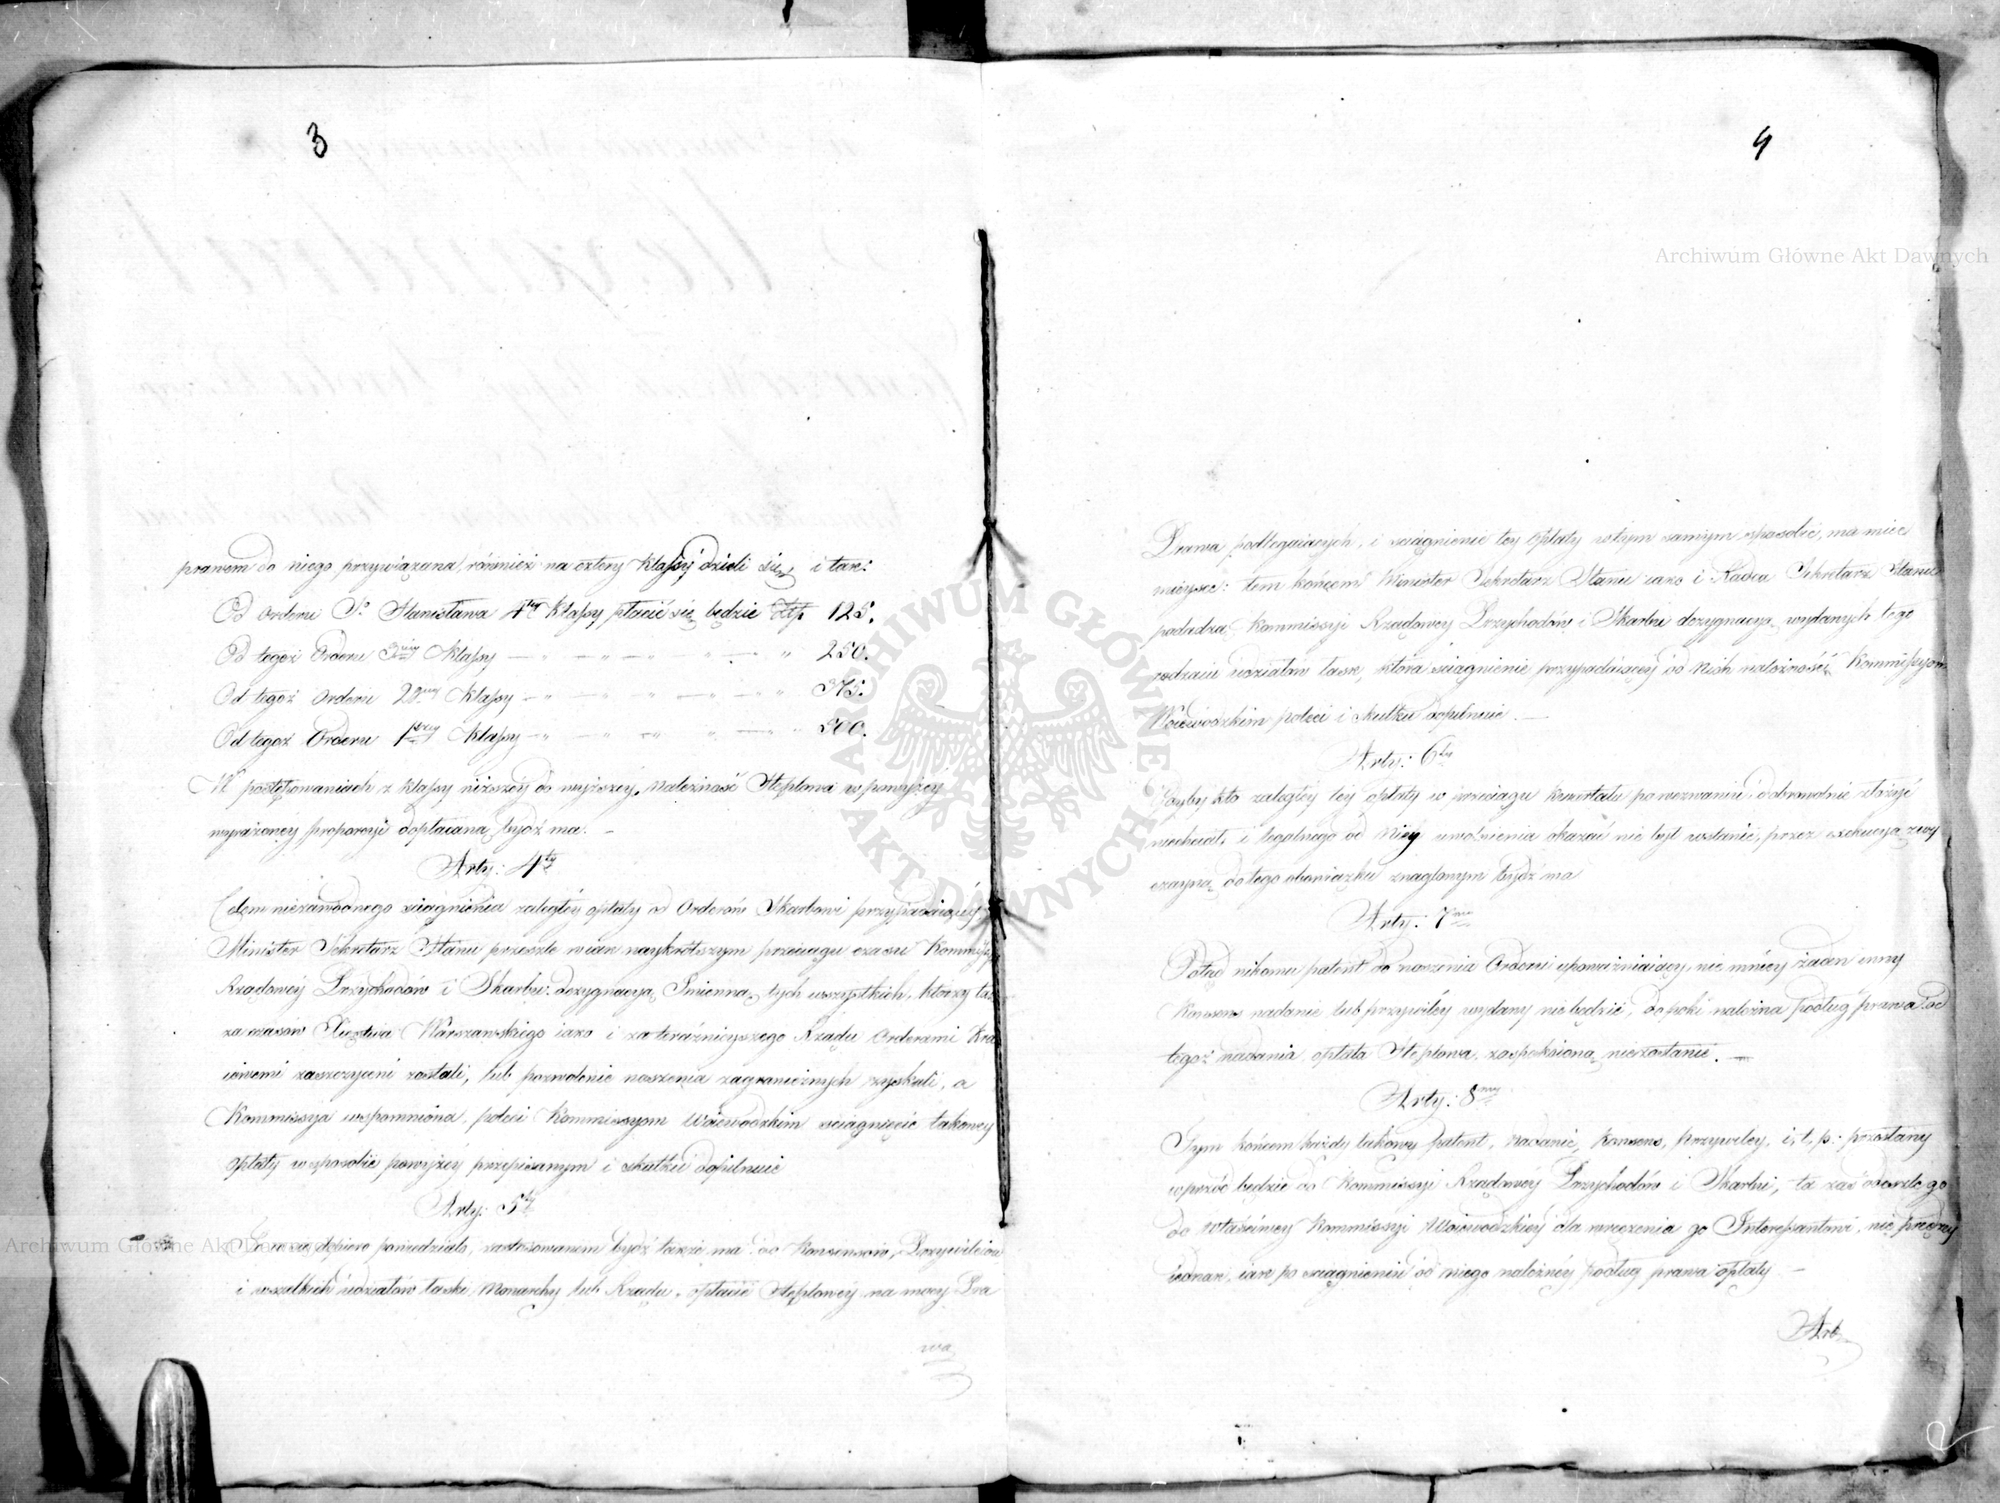 3
prawem do niego przywiązana, również na cztery klassy dzieli się, i tak:
Od orderu Sº Stanisława 4tey klassy płacić się będzie Złp 125.
Od tegoż Orderu 3ciey klassy — " — " — " — " 250.
Od tegoż Orderu 2giey klassy — " — " — " — " 375.
Od tegoż Orderu 1szey klassy — " — " — " — " 500.
W postępowaniach z klassy niższey do wyższey, należność Steplowa w powyżey
wyrażoney proporcyi dopłacana bydź ma. —
Arty: 4ty
Celem niezawodnego ściągnienia zaległey opłaty od Orderów Skarbowi przypadaiącey
Minister Sekretarz Stanu prześle w iak naykrótszym przeciągu czasu Kommissyi
Rządowey Przychodów i Skarbu dezygnacyą Imienną tych wszystkich, którzy tak
za czasów Xięstwa Warszawskiego iako i za teraźnieyszego Rządu Orderami Kra
iowemi zaszczyceni zostali, lub pozwolenie noszenia zagranicznych zyskali, a
Kommissya wspomniona, poleci Kommissyom Woiewódzkim ściągnięcie takowey
Opłaty w sposobie powyżey przepisanym i skutku dopilnuie
Arty: 5ty
To co się dopiero powiedziało, zastosowanem bydź także ma do Konsensów, Przywileiów
i wszelkich udziałów łaski Monarchy lub Rządu, opłacie Steplowey na mocy Pra
wa
4
Prawa podlegaiących, i ściągnienie tey Opłaty w tym samym sposobie, ma mieć
mieysce: tem końcem Minister Sekretarz Stanu iako i Radca Sekretarz Stanu
podadzą Kommissyi Rządowey Przychodów i Skarbu dezygnacyą wydanych tego
rodzaiu udziałów łask, która ściągnienie przypadaiącey od nich należności, Kommissyom
Woiewódzkim poleci i skutku dopilnuie. —
Arty: 6ty
Gdyby kto zaległey tey opłaty w przeciągu kwartału po wezwaniu dobrowolnie złożyć
niechciał, i legalnego od niey uwolnienia okazać nie był wstanie, przez exekucyą zwy
czayną do tego obowiązku znaglonym bydź ma
Arty: 7my
Odtąd nikomu patent do noszenia Orderu upoważniaiący, nie mniey żaden inny
Konsens nadanie lub przywiley wydany nie będzie, dopóki należna podług prawa od
tegoż nadania opłata Steplowa zaspokoioną niezostanie. —
Arty: 8my
Tym końcem każdy takowy patent, nadanie, konsens, przywiley, i, t, p: przesłany
wprzód będzie do Kommissyi Rządowey Przychodów i Skarbu, ta zaś odeszle go
do właściwey Kommissyi Woiewódzkiey dla wręczenia go Interessantowi, nie prędzey
iednak, iak po ściągnieniu od niego należney podług prawa opłaty —
Art
Archiwum Główne Akt Dawnych
Archiwum Główne Akt Dawnych
ARCHIWUM GŁÓWNE AKT DAWNYCH